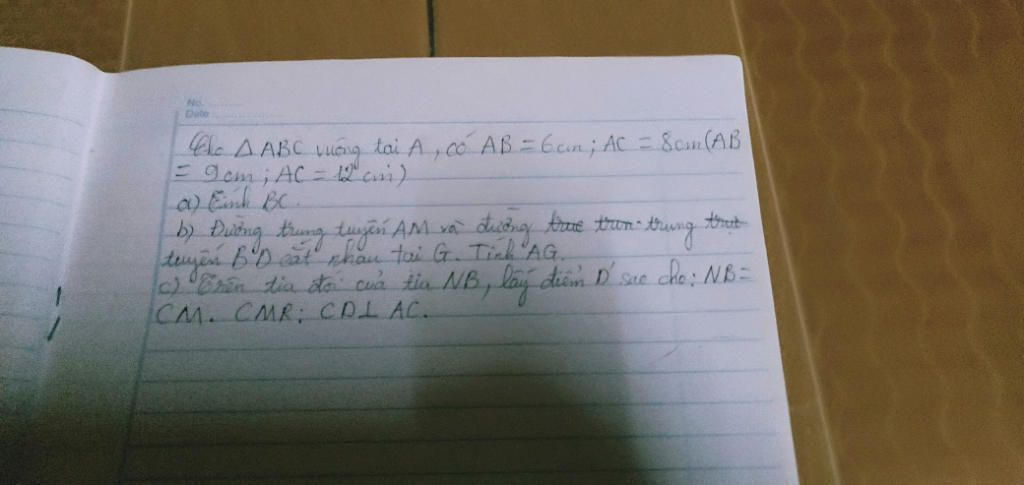 No.
Date
Cho △ ABC vuông tại A, có AB = 6cm; AC = 8cm (AB
= 9cm; AC = 12cm)
a) Tính BC.
b) Đường trung tuyến AM và đường trung
tuyến BD cắt nhau tại G. Tính AG.
c) Trên tia đối của tia NB, lấy điểm D sao cho: NB =
CM. CMR: CD⊥ AC.